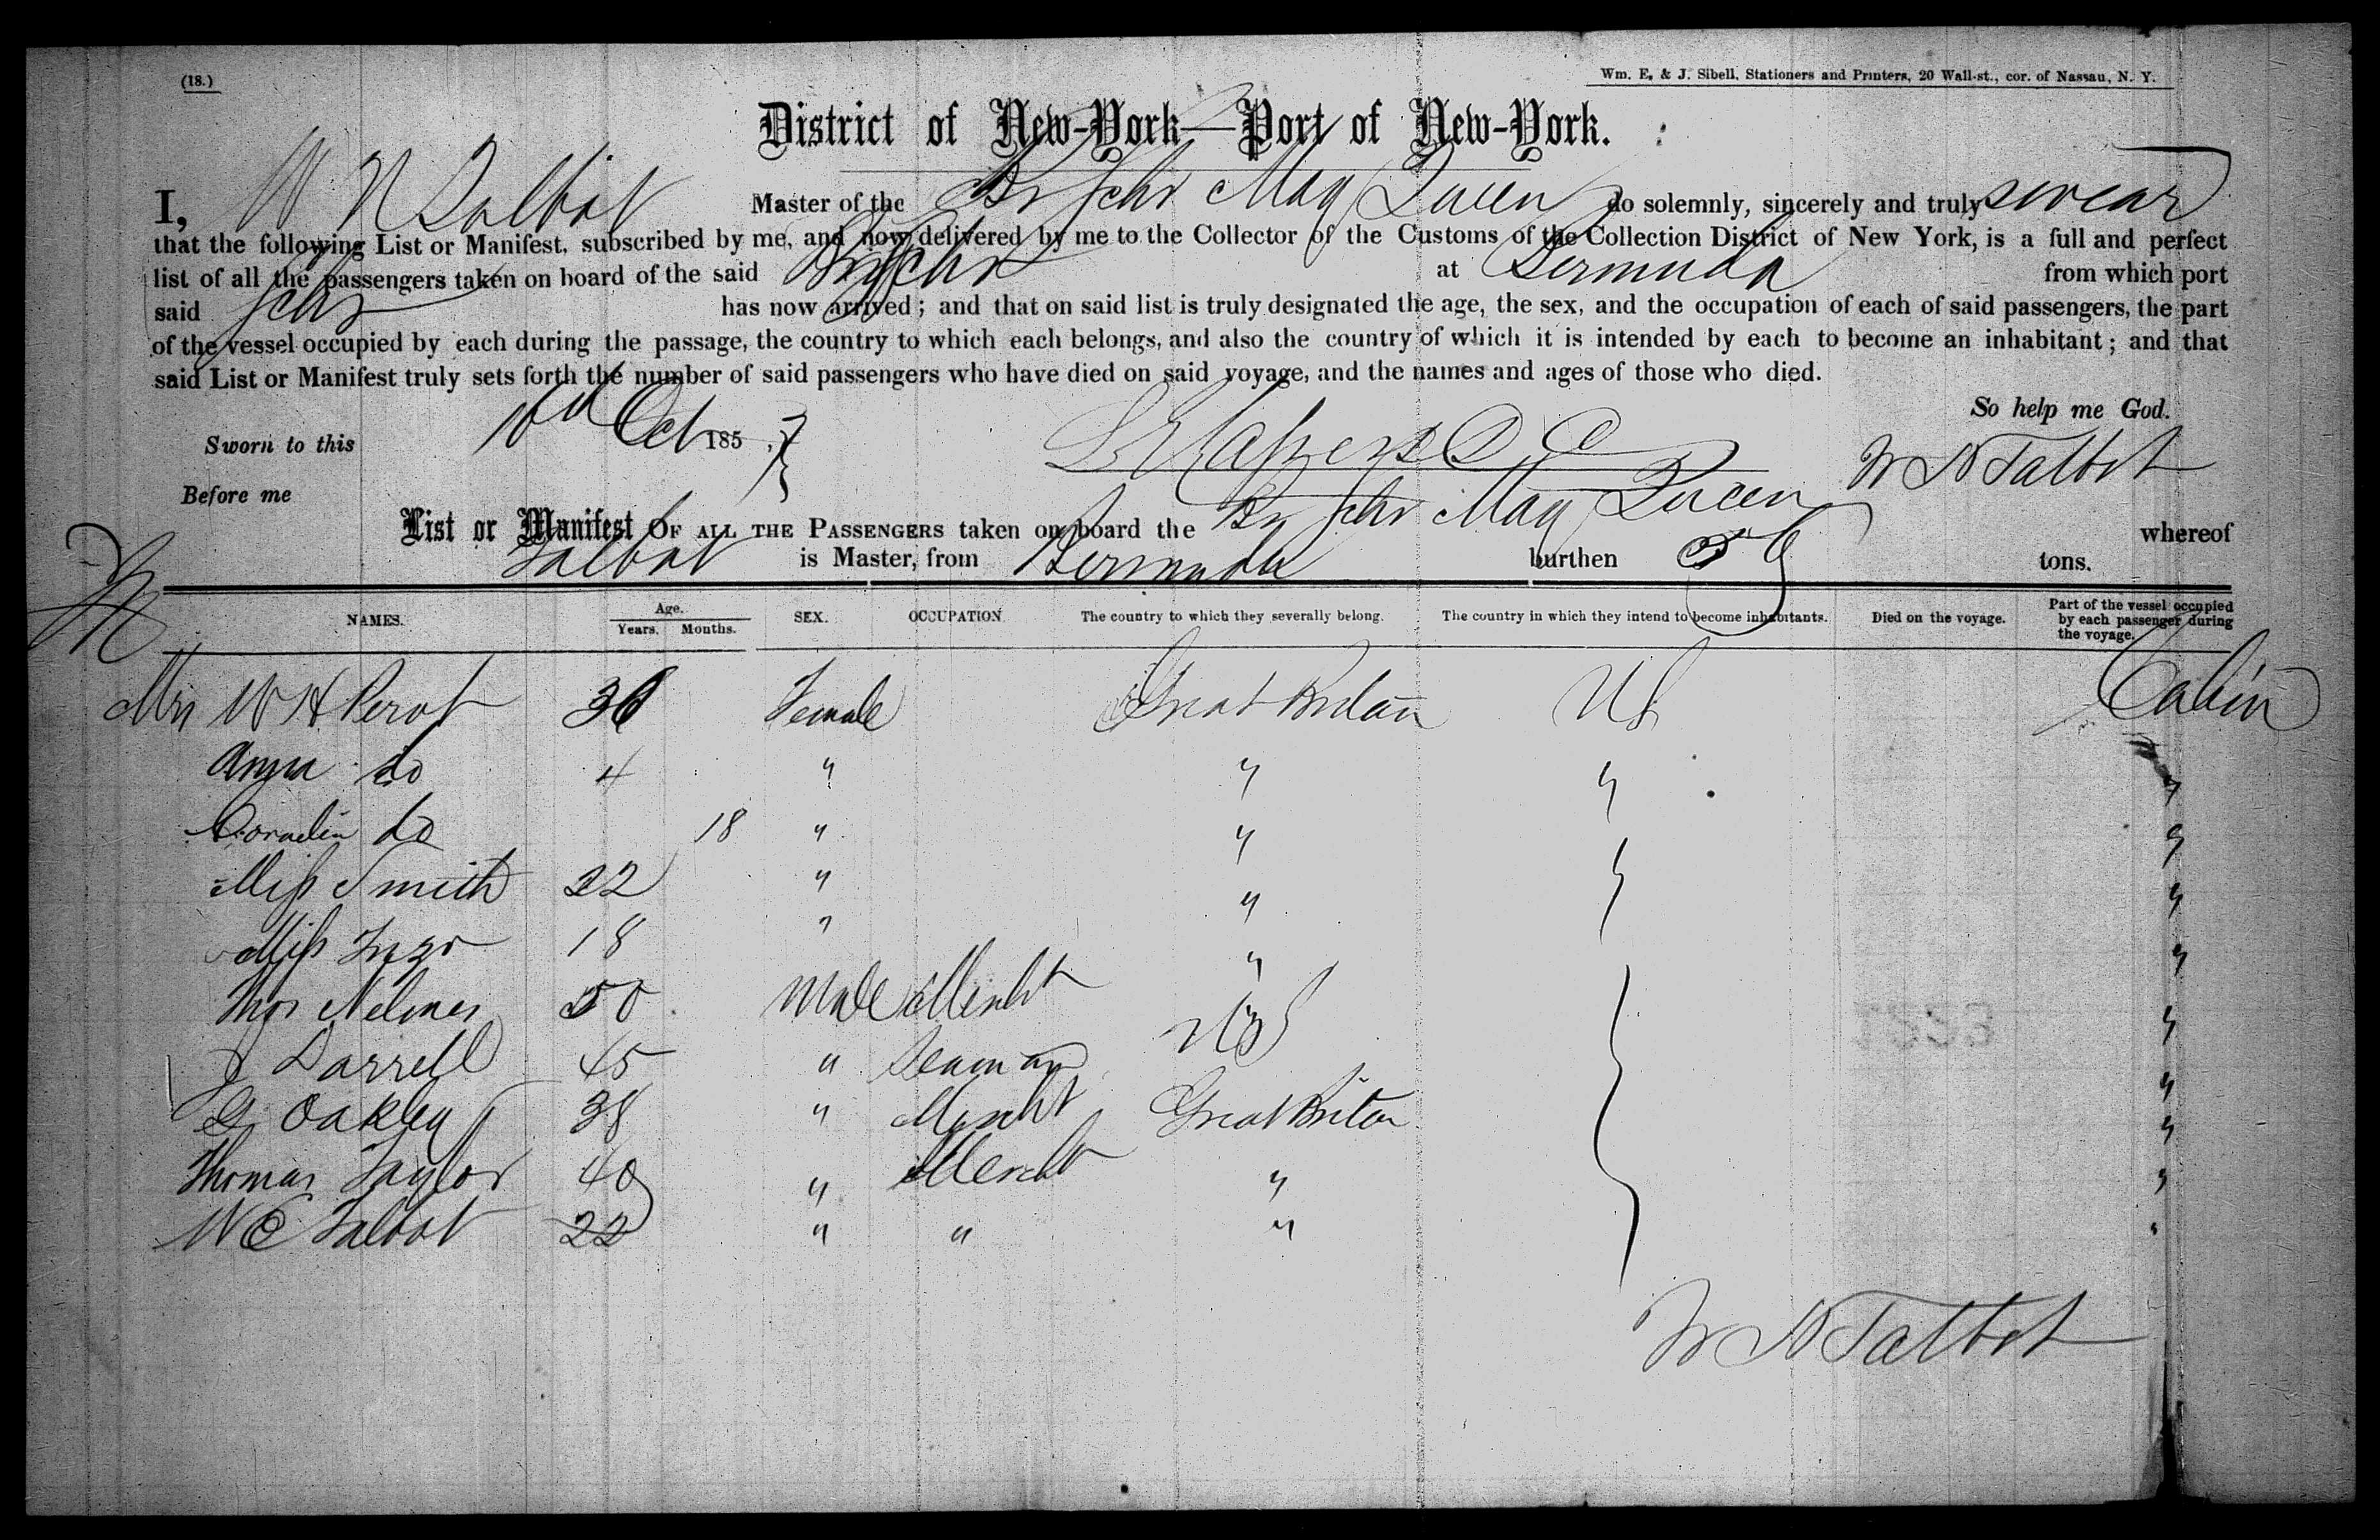 (18.)
Wm. E. & J. Sibell, Stationers and Printers, 20 Wall-st., cor. of Nassau, N. Y.
District of New-York—Port of New-York.
I, W N Talbot Master of the Br Schr May Queen do solemnly, sincerely and truly swear
that the following List or Manifest, subscribed by me, and now delivered by me to the Collector of the Customs of the Collection District of New York, is a full and perfect
list of all the passengers taken on board of the said Br Schr at Bermuda from which port
said Schr has now arrived; and that on said list is truly designated the age, the sex, and the occupation of each of said passengers, the part
of the vessel occupied by each during the passage, the country to which each belongs, and also the country of which it is intended by each to become an inhabitant; and that
said List or Manifest truly sets forth the number of said passengers who have died on said voyage, and the names and ages of those who died.
So help me God.
Sworn to this Oct 1857
W N Talbot
Before me
List or Manifest OF ALL THE PASSENGERS taken on board the Br Schr May Queen whereof
Talbot is Master, from Bermuda burthen tons.
NAMES. Age. Years. Months. SEX. OCCUPATION. The country to which they severally belong. The country in which they intend to become inhabitants. Died on the voyage. Part of the vessel occupied by each passenger during the voyage.
Mrs W H Perot 36 Female Great Britain US Cabin
Anna do 4 " " " "
Cornelia do 18 " " "
Miss Smith 22 " " "
Miss 18 " " "
Thos Nelmes 50 Male Mercht "
J Darrell 45 " Seaman "
G Oakley 38 " Mercht Great Britan "
Thomas Taylor 40 " Mercht " "
W C Talbot 22 " " " "
W N Talbot